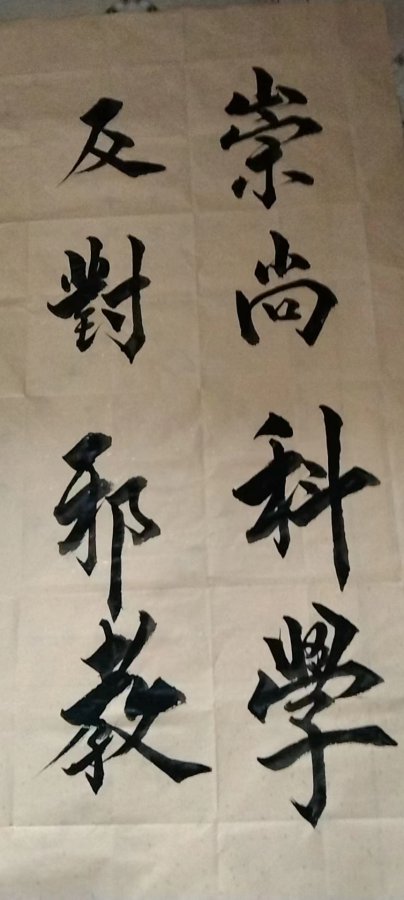 崇尚科學
反對邪教